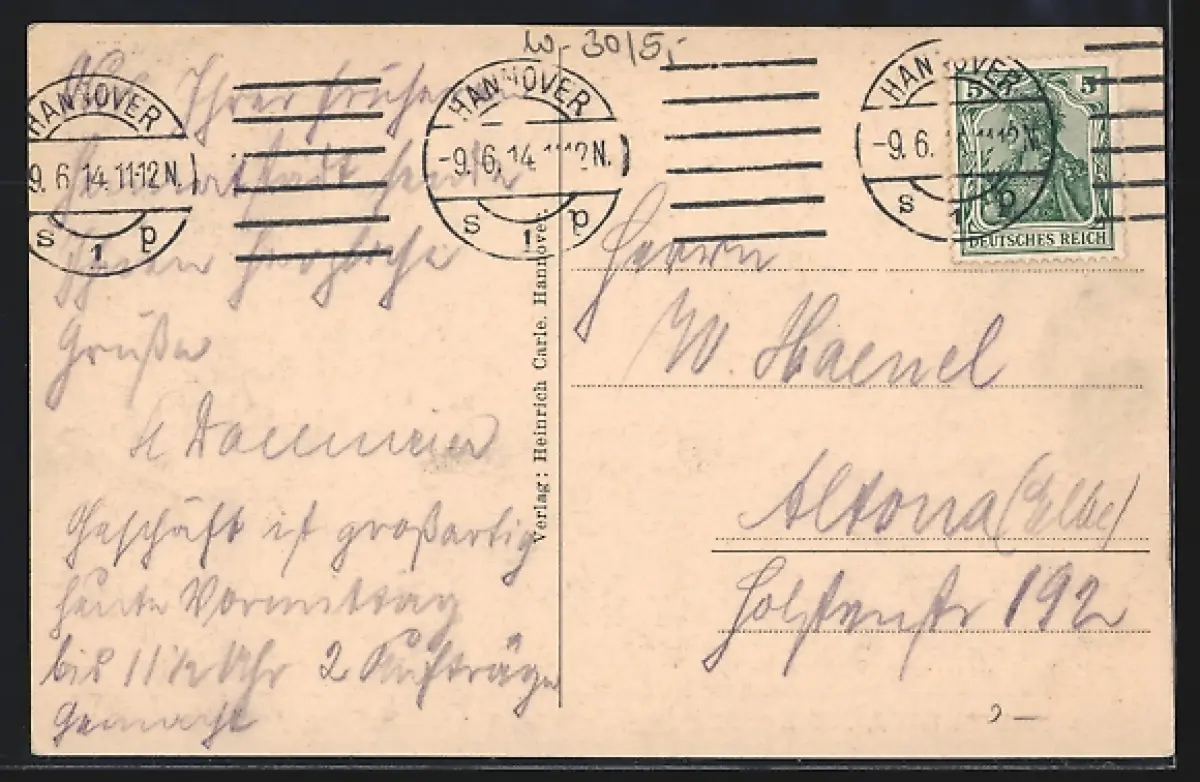 w. 30/5,-
HANNOVER
9.6.14.11-12 N.
s 1 p
HANNOVER
-9.6.14 11-12 N.
s 1 p
HANNOVER
-9.6.14 11-12 N.
s 1 p
5 5
DEUTSCHES REICH
Aus Ihrer früheren
heute
Ihnen herzliche
Grüße
Dallmeier
Geschäft ist großartig
heute Vormittag
bis 11 1/2 Uhr 2 Aufträge
gemacht
Verlag: Heinrich Carle, Hannover.
Herrn
W. Haenel
Altona (Elbe)
Holstenstr 192